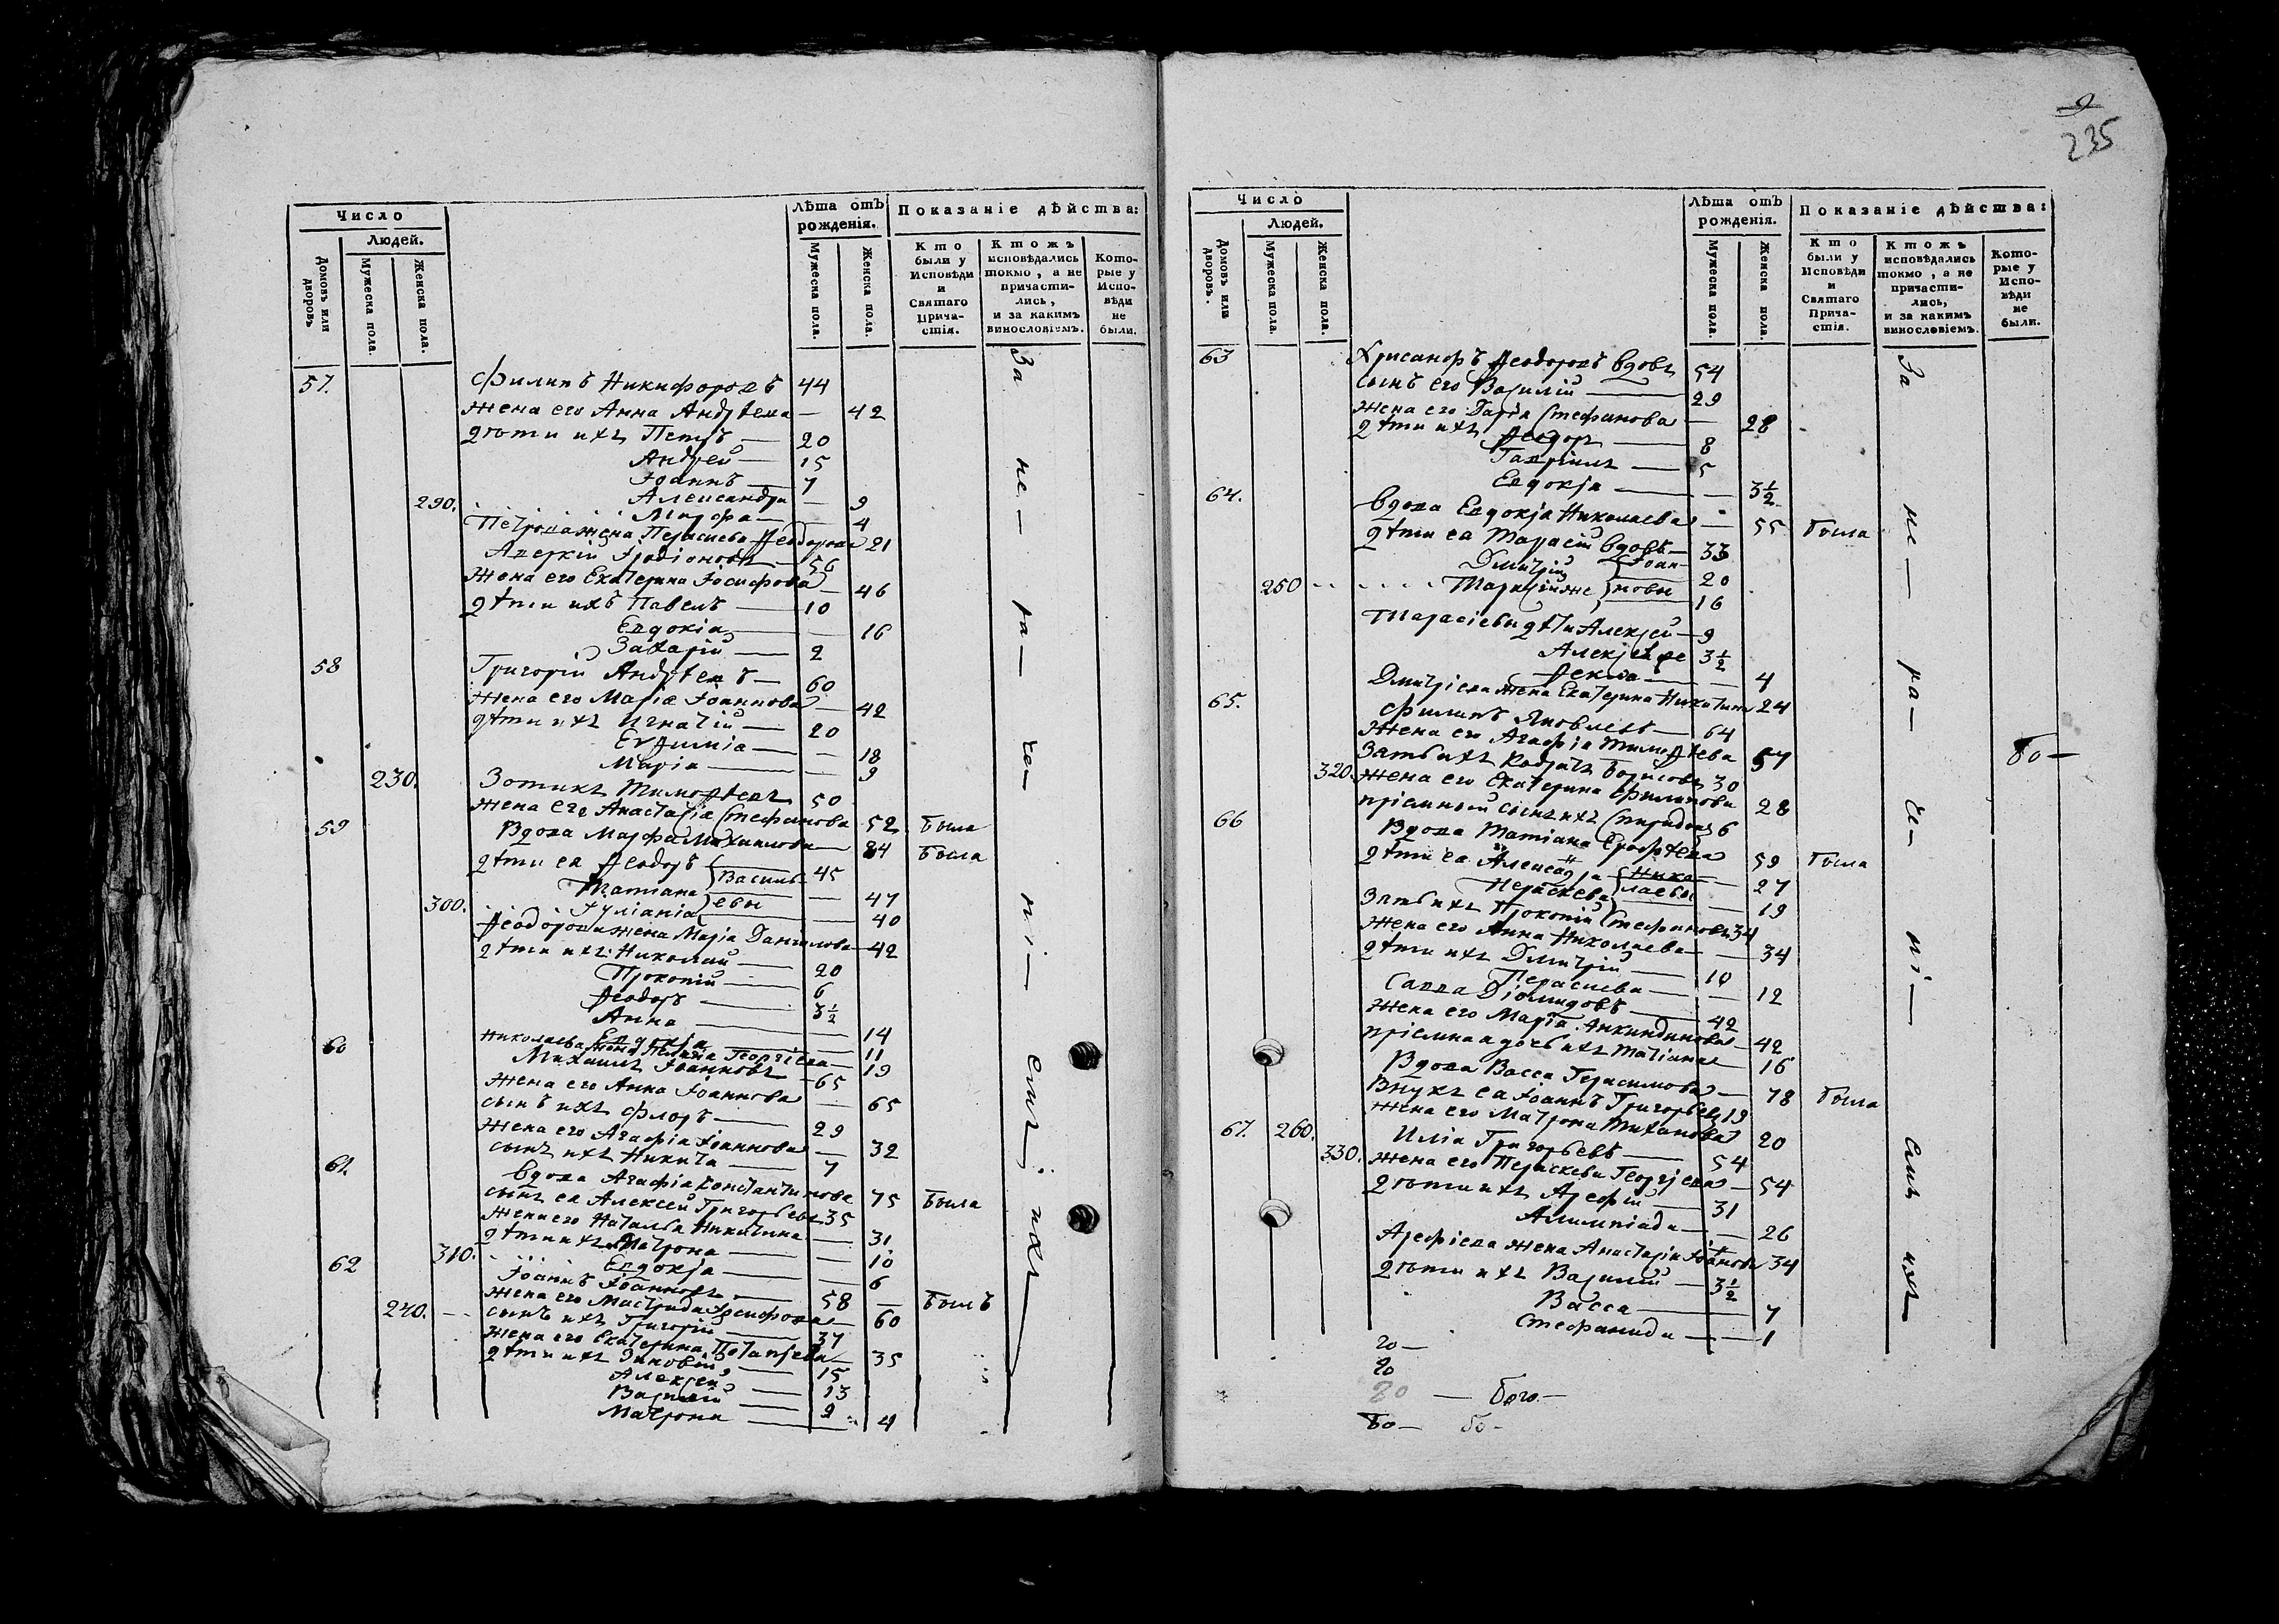 Число
Людей.
Домовъ или дворовъ
Мужеска пола.
Женска пола.
Лѣта отъ рожденія.
Мужеска пола.
Женска пола.
Показаніе дѣйства:
Кто были у Исповѣди и Святаго Прича-стія.
Ктожъ исповѣдались токмо, а не причасти-лись, и за какимъ винословіемъ.
Кото-рые у Испо-вѣди не были.
57. Филипъ Никифоровъ 44
жена его Анна Андрѣева — 42
дѣти ихъ Петръ — 20
Андрей — 15
Іоаннъ — 7
290. Александра — 9
— 4
Петрова жена Параскева Ѳеодорова 21
Аверкій Іродіоновъ — 56
жена его Екатерина Іосифова — 46
дѣти ихъ Павелъ — 10
Евдокіа — 16
Захарій — 2
58 Григорій Андрѣевъ — 60
жена его Маріа Іоаннова — 42
дѣти ихъ Игнатій — 20
Еѵѳиміа — 18
Маріа — 9
230. Зотикъ Тимоѳѣевъ 50
жена его Анастасіа Стефанова 52 была
59 Вдова Марфа Михаилова — 84 была
дѣти ея Ѳеодоръ Василь- 45
Татіана евы — 47
300. Іуліаніа — 40
Ѳеодорова жена Маріа Даніилова — 42
дѣти ихъ: Николай — 20
Прокопій — 6
Ѳеодоръ — 3½
Анна — 14
Евдокіа — 11
Николаева жена Георгіева — 19
60 Михаилъ Іоанновъ — 65
жена его Анна Іоаннова — 65
сынъ ихъ Флоръ — 29
жена его Агафіа Іоаннова — 32
сынъ ихъ Никита — 7
61. Вдова Агафіа Константинова 75 была
сынъ ея Алексей Григорьевъ 35
жена его Наталья Никитина — 31
дѣти ихъ Матрона — 10
310. Евдокіа — 6
62 Іоаннъ Іоанновъ — 58 — былъ
жена его Мастридіа Іосифова — 60
240. — сынъ ихъ Григорій — 37
жена его Екатерина Потапіева — 35
дѣти ихъ Зиновій — 15
Алексей — 13
Василій — 9
Матрона — 4
За не-ра-че-ні-емъ ихъ
9
235
Число
Людей.
Домовъ или дворовъ.
Мужеска пола.
Женска пола.
Лѣта отъ рожденія.
Мужеска пола.
Женска пола.
Показаніе дѣйства:
Кто были у Исповѣди и Святаго Прича-стія.
Ктожъ исповѣдались токмо, а не причасти-лись, и за какимъ винословіемъ.
Кото-рые у Испо-вѣди не были.
63 Хрисанфъ Ѳеодоровъ вдовъ 54
сынъ его Василій — 29
жена его Даріа Стефанова — 28
дѣти ихъ Ѳеодоръ — 8
Гавріилъ — 5
Евдокіа — 3½
64. Вдова Евдокіа Николаева — 55 была
дѣти ея Тарасій вдовъ — 33
Дмитрій Іоан- 20
250 Тарасійже новы 16
Тарасіевы дѣти Алексей — 9
Алексейже 3½
Ѳекла — 4
Дмитріева жена Екатерина Никитина 24
65. Филипъ Яковлевъ — 64
жена его Агафіа Тимоѳѣева 57
Зять ихъ Кодратъ Борисовъ 30
320. жена его Екатерина Филипова 28
пріемный сынъ ихъ Спиридонъ 6
66 Вдова Татіана Ерофѣева 59 была
дѣти ея Александра Нико- 27
Параскева лаевы — 19
Зять ихъ Прокопій Стефановъ 34
жена его Анна Николаева — 34
дѣти ихъ Дмитрій — 10
Параскева — 12
Савва Діомидовъ — 42
жена его Маріа Анкиндинова — 42
пріемная дочь ихъ Татіана — 16
Вдова Васса Герасимова — 78 была
Внукъ ея Іоаннъ Григорьевъ 19
жена его Матрона Тиханова 20
67. 260. Иліа Григорьевъ — 54
330. жена его Параскева Георгіева — 54
дѣти ихъ Арефій — 31
Алимпіада — 26
Арефіева жена Анастасіа Іоаннова 34
дѣти ихъ Василій — 3½
Васса — 7
Стефанида — 1
За не-ра-че-ні-емъ ихъ
бо —
20 —
20
20 —
бо — бо -